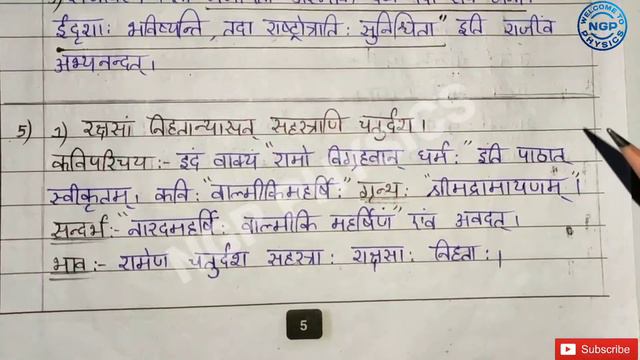 ईदृशाः भविष्यन्ति, तदा राष्ट्रोन्नतिः सुनिश्चिता" इति राजीवं
अभ्यनन्दत्।
5) 1) रक्षसां निहतान्यासन् सहस्त्राणि चतुर्दश।
कविपरिचयः- इदं वाक्यं "रामो विग्रहवान् धर्मः" इति पाठात्
स्वीकृतम्। कविः "वाल्मीकिमहर्षिः" ग्रन्थः "श्रीमद्रामायणम्"।
सन्दर्भः- "नारदमहर्षिः वाल्मीकि महर्षिणं" एवं अवदत्।
भावः- रामेण चतुर्दश सहस्त्राः राक्षसाः निहताः।
5
WELCOME TO
NGP
PHYSICS
NGP PHYSICS
Subscribe